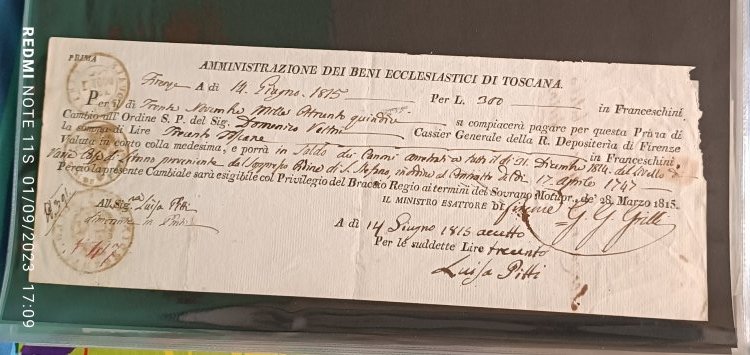 PRIMA
AMMINISTRAZIONE DEI BENI ECCLESIASTICI DI TOSCANA.
Firenze A dì 14. Giugno. 1815 Per L. 300 in Franceschini
Per il dì Trenta Novembre Mille Ottocento quindici si compiacerà pagare per questa Prima di
Cambio all'Ordine S. P. del Sig. Domenico Cassier Generale della R. Depositeria di Firenze
la somma di Lire Trecento in Franceschini
Valuta in conto colla medesima, e porrà in Saldo dei Canoni a tutto il dì 31. Dicembre 1814. del livello
di S. Stefano, 17. Aprile 1747
Perciò la presente Cambiale sarà esigibile col Privilegio del Braccio Regio ai termini del Sovrano Motupr. de' 28. Marzo 1815.
IL MINISTRO ESATTORE DI Firenze
All. Sig.ra Luisa Pitti
A dì 14 Giugno 1815 accetto
Per le suddette Lire trecento
Luisa Pitti
REDMI NOTE 11S 01/09/2023 17:09